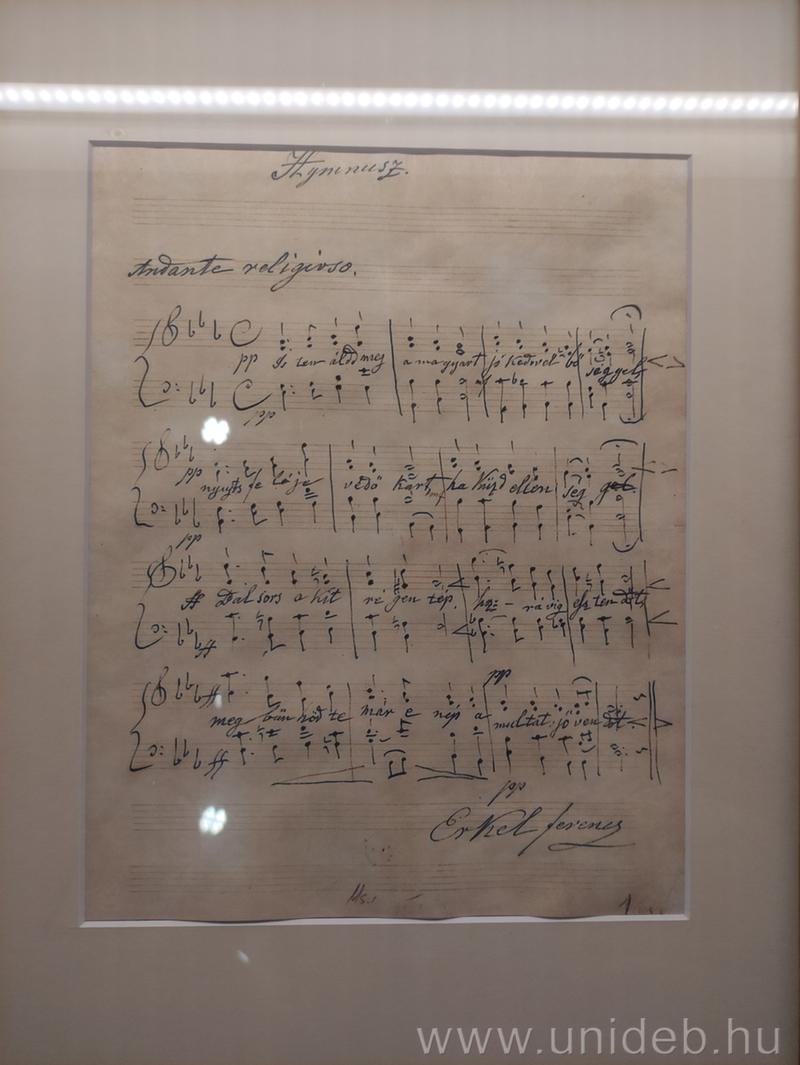 Hymnusz.
Andante religioso.
pp Is ten áldd meg a magyart jó kedvvel bő seg gel
pp
pp nyujts fe lé je védő kart ha küzd ellen seg gel
pp
ff Bal sors a kit ré gen tép, hoz - rá víg esz ten dőt
ff
pp
ff meg bün hőd te már e nép a multat jö ven dőt
ff
pp
Erkel Ferencz
Ms. 1
1
www.unideb.hu